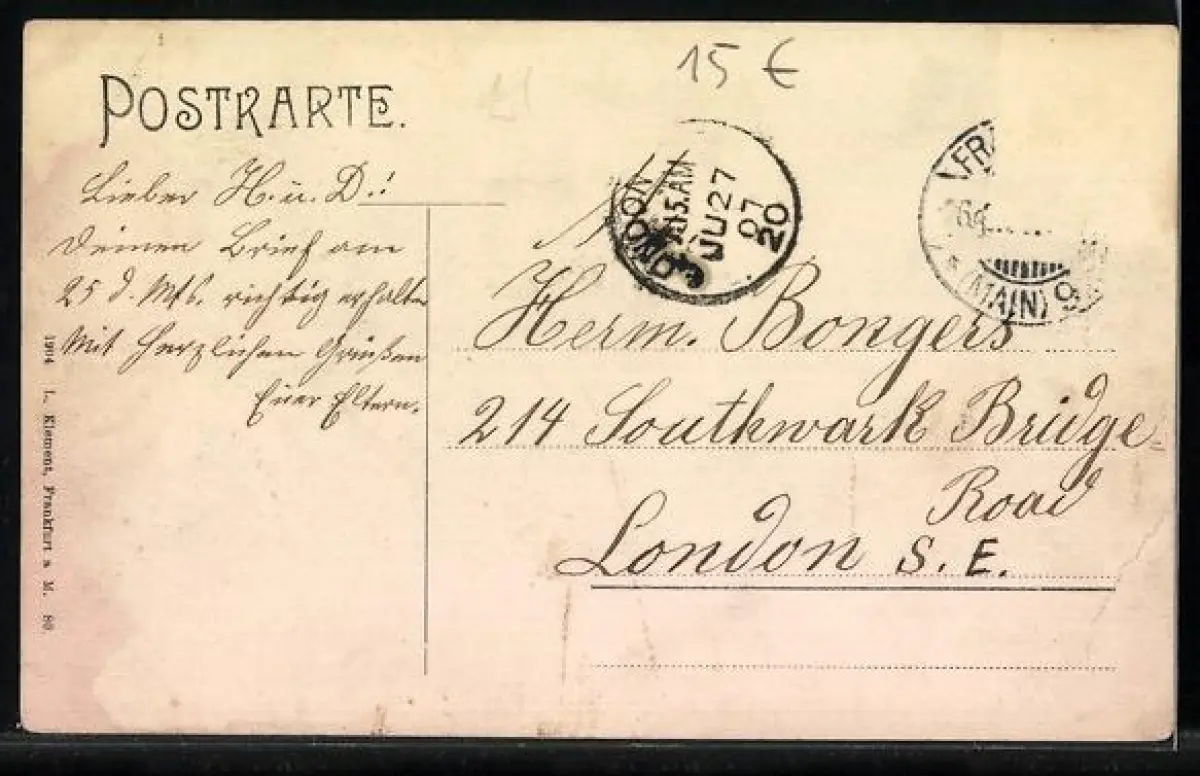 15 €
POSTKARTE.
Lieber H. u. D.!
Deinen Brief am
25 d. Mts. richtig erhalten
Mit herzlichen Grüßen
Euer Eltern.
LONDON
.15.AM
JU 27
07
20
FRA
(MAIN) 9
Herm. Bongers
214 Southwark Bridge
Road
London S. E.
1904 L. Klement, Frankfurt a M. 80.